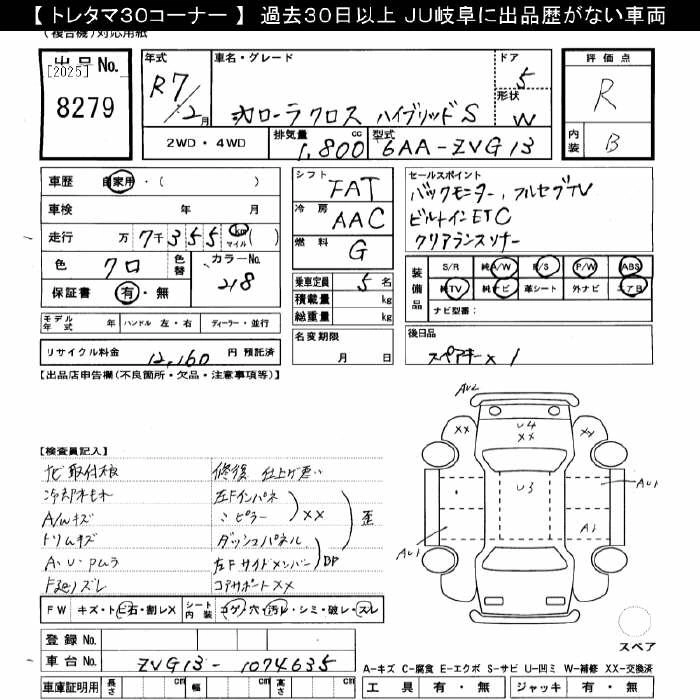 【 トレタマ30コーナー 】 過去30日以上 JU岐阜に出品歴がない車両
(複合機)対応用紙
出品No.
[2025]
8279
年式
R7/2月
車名・グレード
カローラクロス ハイブリッド S
ドア
5
形状
W
2WD・4WD
排気量
1,800 cc
型式
6AA-ZVG13
評価点
R
内装
B
車歴 自家用・( )
車検 年 月
走行 万 7千 3 5 5 km マイル ( )
色 クロ 色替
カラーNo.
218
保証書 有・無
モデル年式 年 ハンドル 左・右 ディーラー・並行
リサイクル料金 12,160 円 預託済
シフト FAT
冷房 AAC
燃料 G
乗車定員 5 名
積載量 kg
総重量 kg
名変期限
月 日
セールスポイント
バックモニター, フルセグTV
ビルトインETC
クリアランスソナー
装備品
S/R 純A/W P/S P/W ABS
純TV 純ナビ 革シート 外ナビ エアB
ナビ型番:
後日品
スペアキー x 1
【出品店申告欄(不良箇所・欠品・注意事項等)】
【検査員記入】
ナビ取付根
A/Wキズ
トリムキズ
A.U.Pムラ
修復 仕上げ悪い
左Fインパネ
ミピラー
ダッシュパネル
左Fサイドメンバー
コアサポートXX
XX
歪
DP
FW キズ・トビ石・割レX
シート内装 コゲ・穴・汚レ・シミ・破レ・スレ
登録 No.
車台 No. ZVG13-1074635
車庫証明用 長さ cm 幅 cm 高さ cm
AU2
XX
U4
XX
XX
U3
AU1
A1
AU1
スペア
A-キズ C-腐食 E-エクボ S-サビ U-凹ミ W-補修 XX-交換済
工具 有・無 ジャッキ 有・無